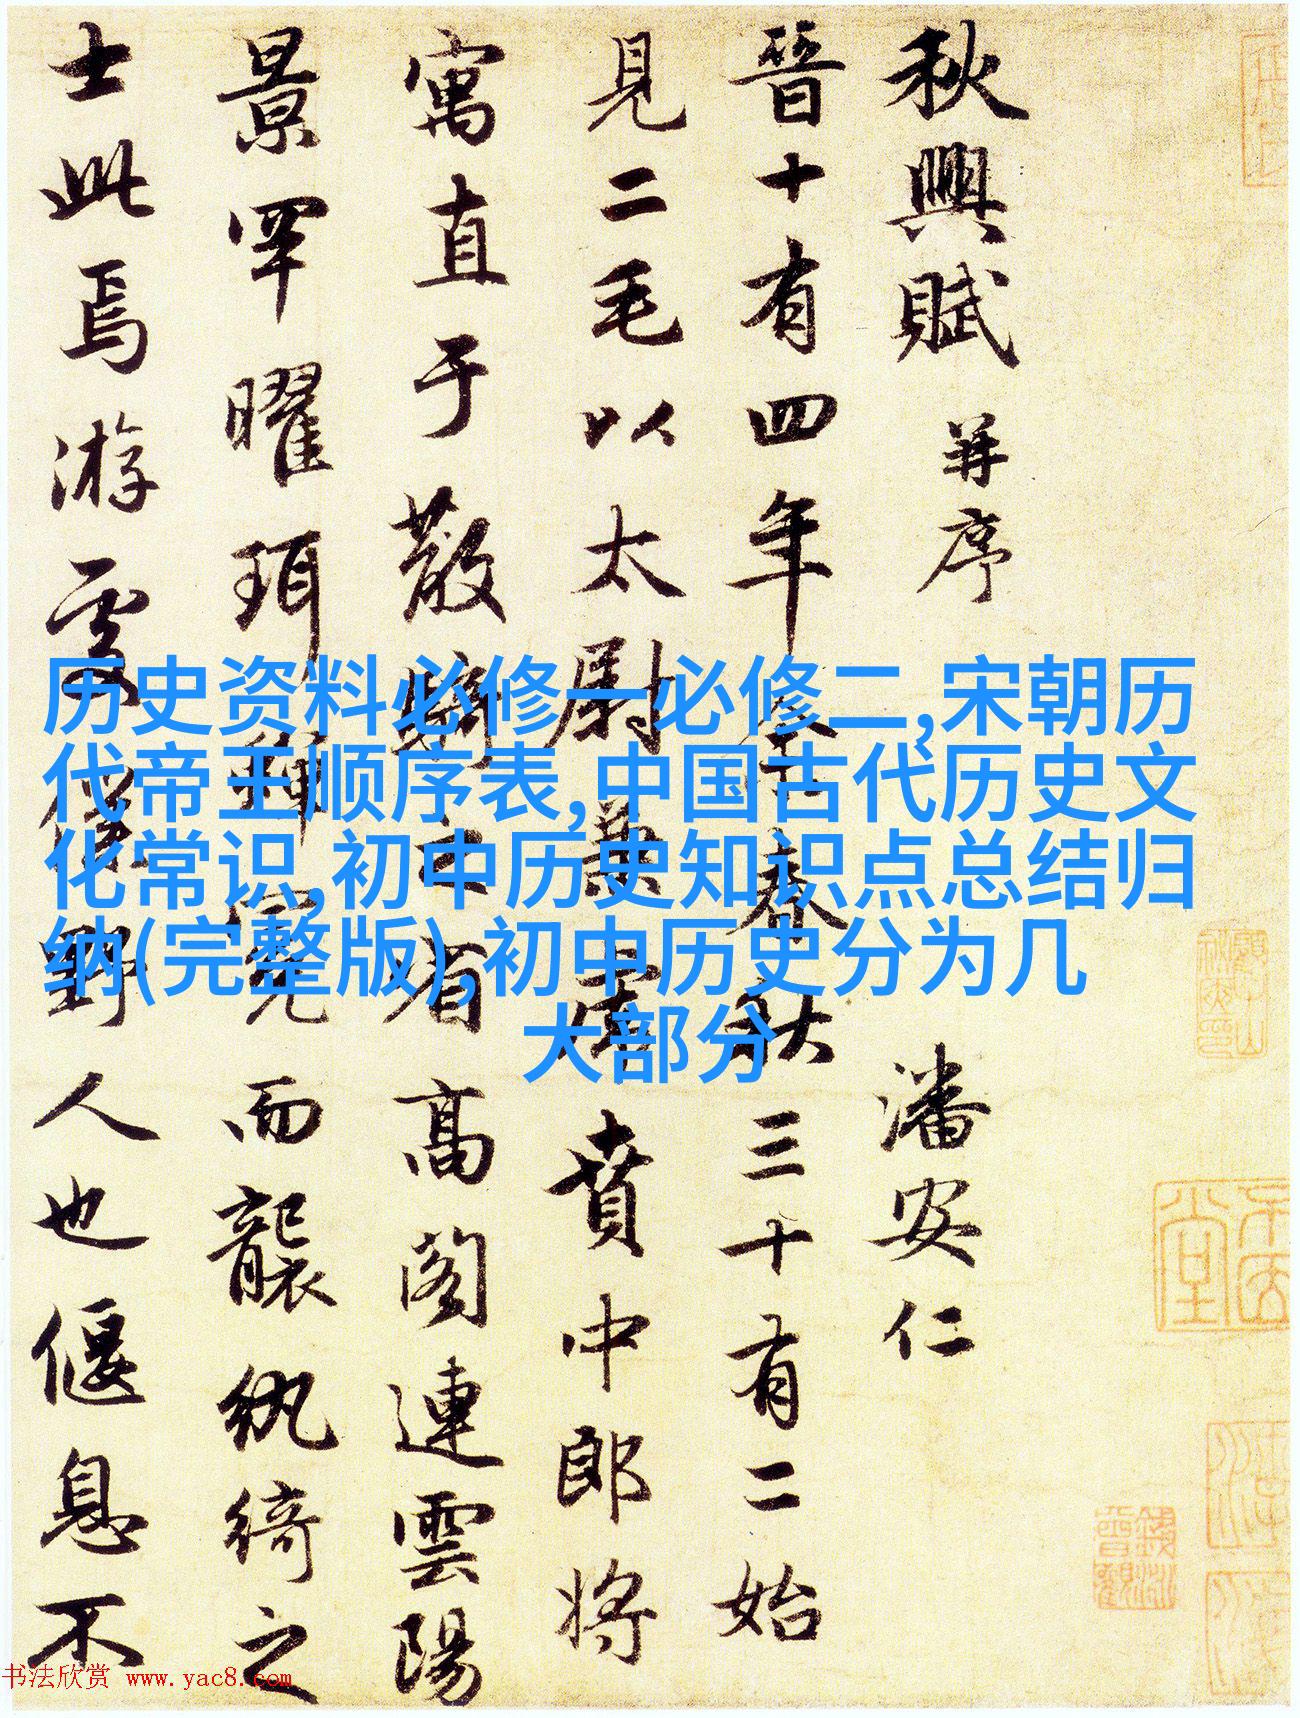 秋興賦 并序 潘安仁
晉十有四年余春秋三十有二始
見二毛以太尉兼虎賁中郎將
寓直于散騎之省高閣連雲陽
景罕曜珥蟬冕而襲紈綺之
士此焉游處僕野人也偃息不
历史资料必修一必修二,宋朝历
代帝王顺序表,中国古代历史文
化常识,初中历史知识点总结归
纳(完整版),初中历史分为几
大部分
书法欣赏 www.yac8.com